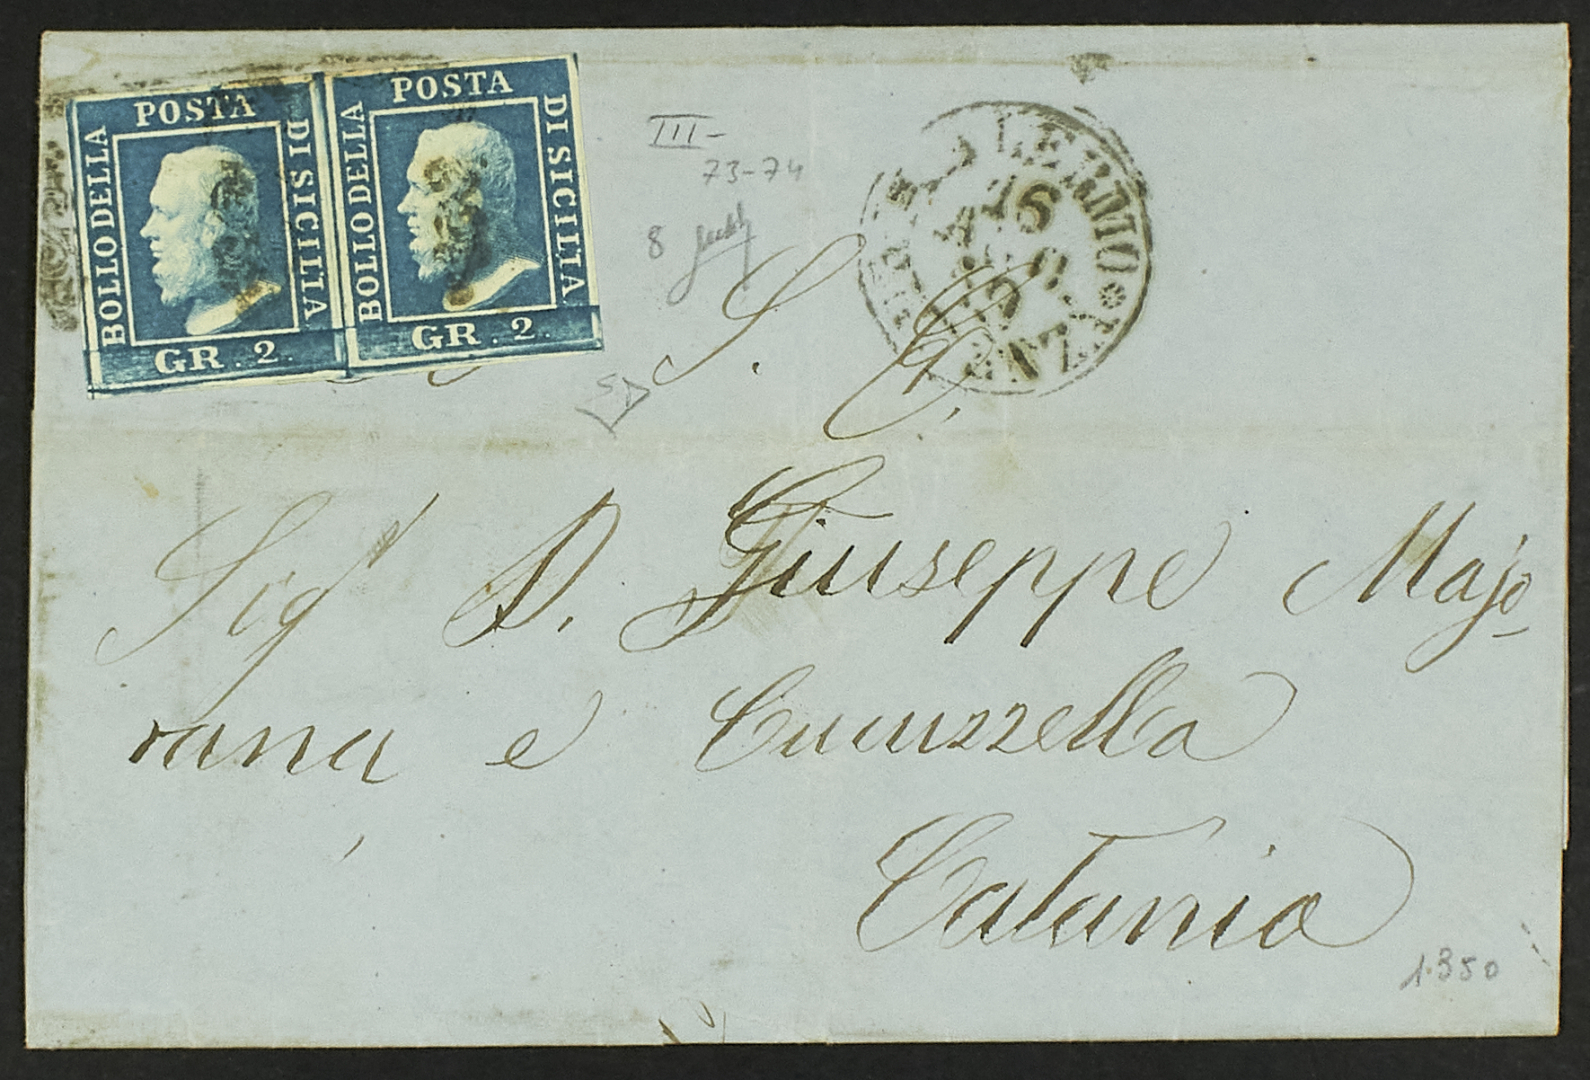 POSTA
BOLLO DELLA
DI SICILIA
GR. 2.
POSTA
BOLLO DELLA
DI SICILIA
GR. 2.
III-
73-74
8
PALERMO
16
AGO.
PARTENZA
S. G.
Sigr D. Giuseppe Majo
rana e Cucuzzella
Catania
1.350